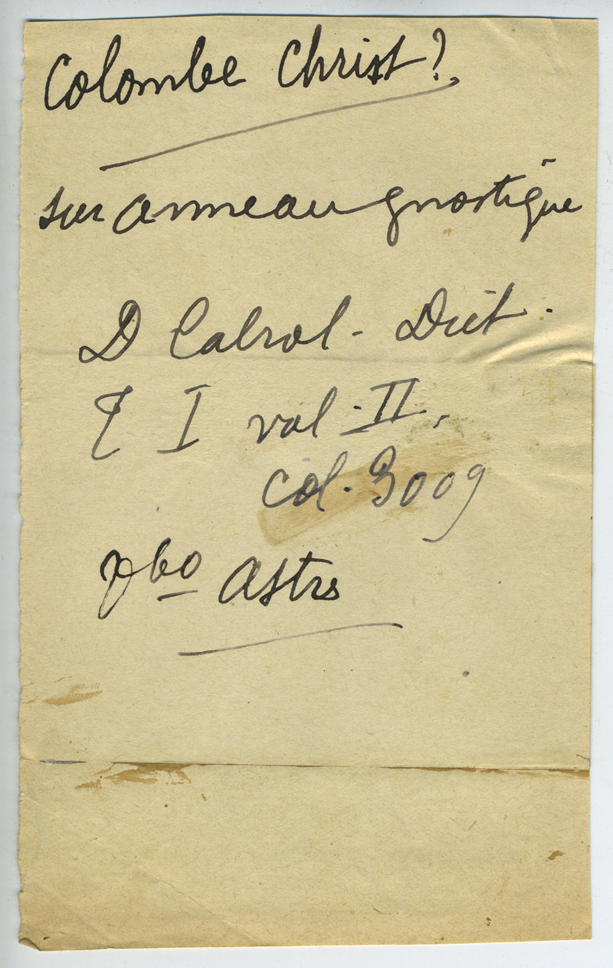 Colombe Christ?
sur anneau gnostique
D Cabrol - Dict.
T I vol. II.
col. 3009
Vbo Astrs